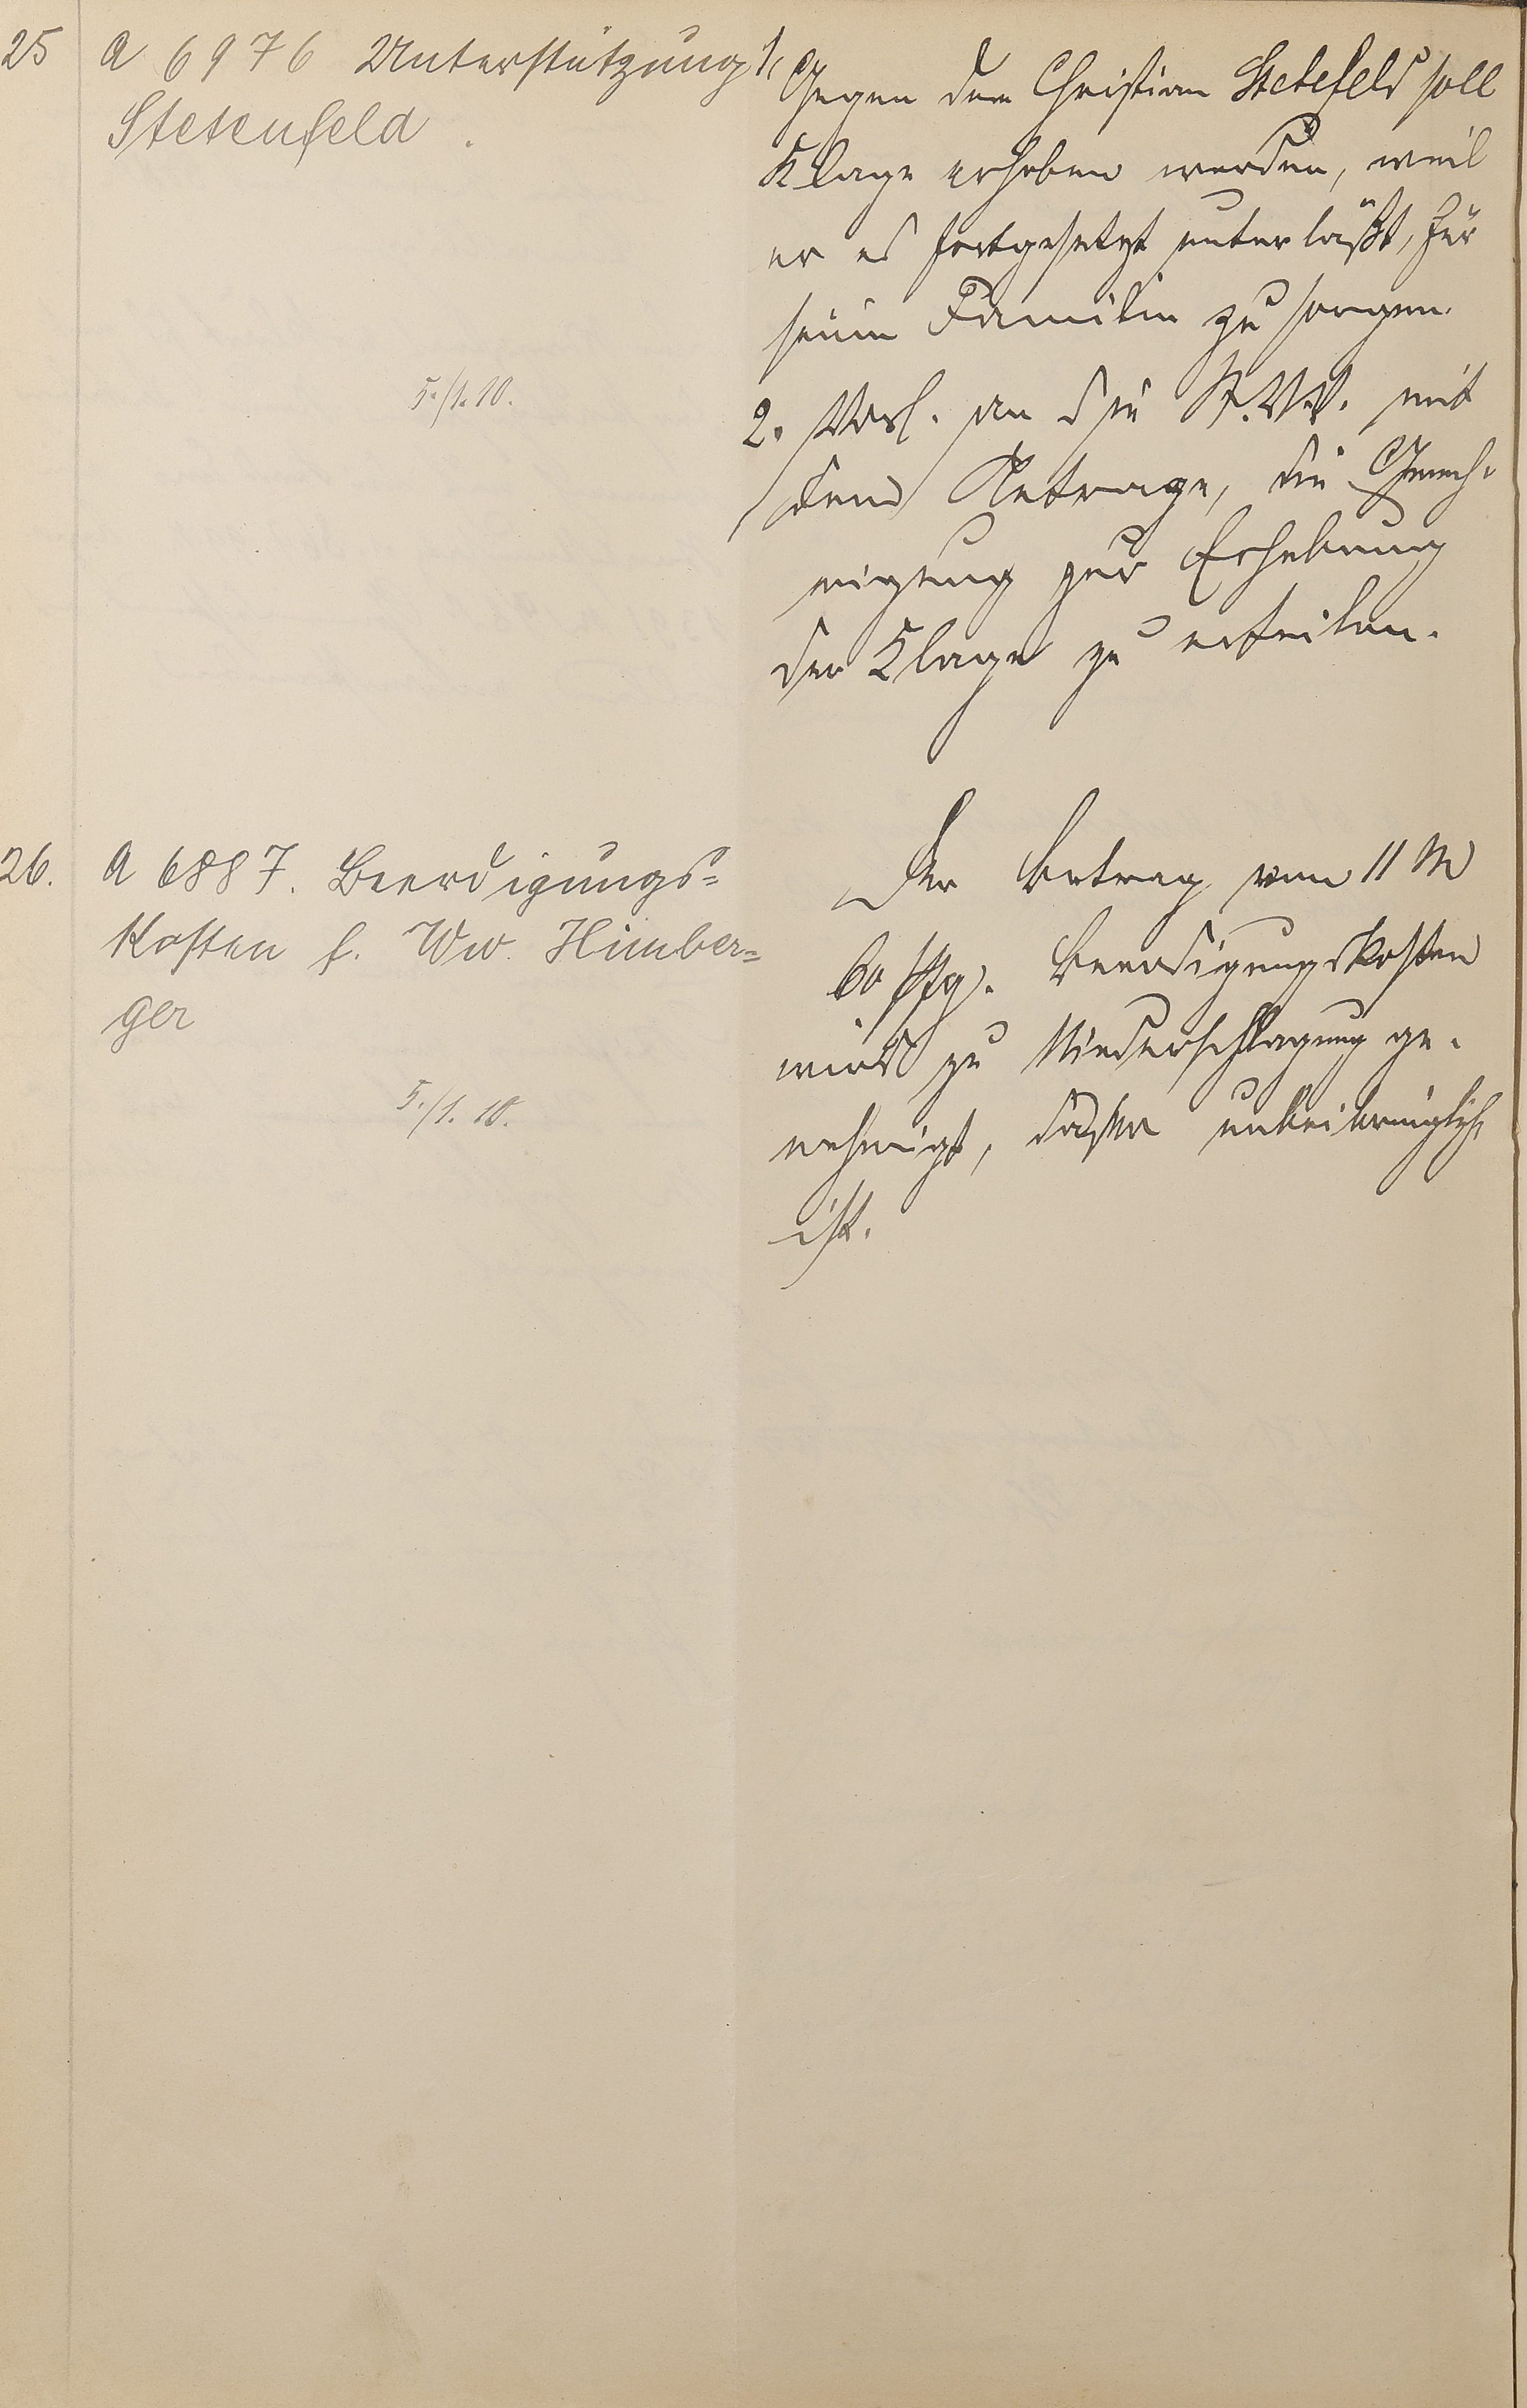 25 A 6976 Unterstützung
Stetenfeld.
5./1. 10.
1. Gegen den Christian Stetefeld soll
Klage erhoben werden, weil
er es fortgesetzt unterläßt, für
seine Familie zu sorgen.
2. Vorl. an die St.V.V. mit
dem Antrage, die Geneh-
migung zur Erhebung
der Klage zu erteilen.
26. A 6887. Beerdigungs=
kosten f. Ww. Himber=
ger
5./1. 10.
Der Betrag von 11 M
60 Pfg. Beerdigungskosten
wird zu Niederschlagung ge-
nehmigt, da er unbeibringlich
ist.